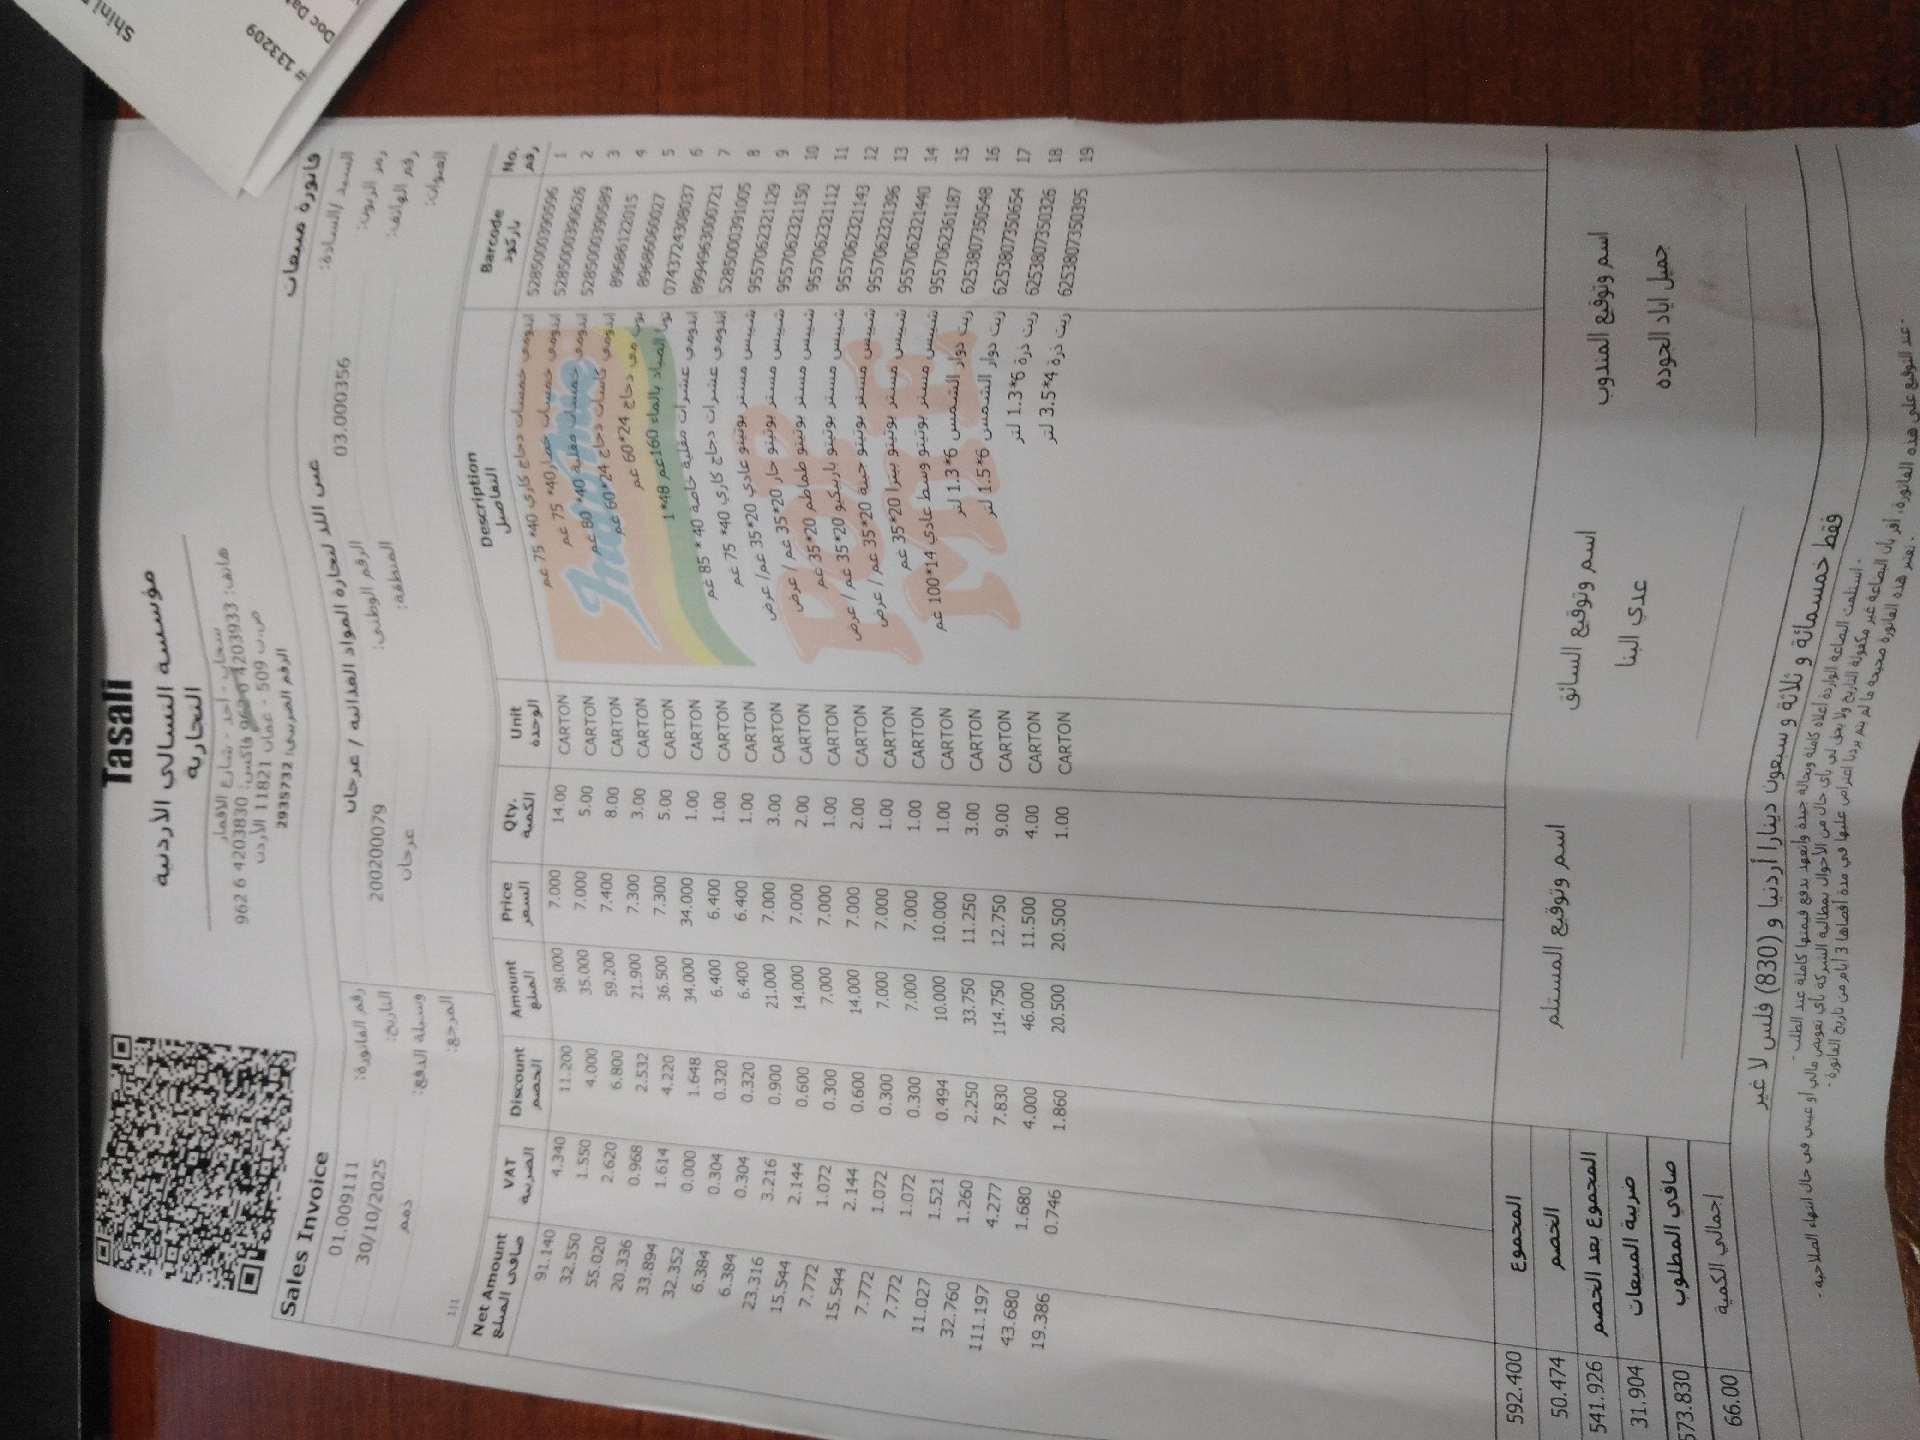 Tasali
مؤسسة التسالي الأردنية
التجارية
سحاب - أحد - شارع الاقمار
هاتف: 4203933 6 962 فاكس: 4203830 6 962
ص.ب 509 - عمان 11821 الأردن
الرقم الضريبي: 2935732
Sales Invoice فاتورة مبيعات
السيد /السادة: عين اللد لتجارة المواد الغذائية / عرجان رقم الفاتورة: 01.009111
رمز الزبون: 03.000356 الرقم الوطني: 200200079 التاريخ: 30/10/2025
رقم الهاتف: المنطقة: عرجان وسيلة الدفع: ذمم
العنوان: المرجع:
1/1
No. Barcode Description Unit Qty. Price Amount Discount VAT Net Amount
رقم باركود التفاصيل الوحدة الكمية السعر المبلغ الخصم الضريبة صافي المبلغ
1 5285000390596 اندومي خمسات دجاج كاري 40* 75 غم CARTON 14.00 7.000 98.000 11.200 4.340 91.140
2 5285000390626 اندومي خمسات خضار 40* 75 غم CARTON 5.00 7.000 35.000 4.000 1.550 32.550
3 5285000390589 اندومي خمسات مقلية 40* 80 غم CARTON 8.00 7.400 59.200 6.800 2.620 55.020
4 89686122015 اندومي كاسات دجاج 24*60 غم CARTON 3.00 7.300 21.900 2.532 0.968 20.336
5 89686060027 مي دجاج 24*60 غم CARTON 5.00 7.300 36.500 4.220 1.614 33.894
6 0743724308037 تونا الصياد بالماء 160غم 48*1 CARTON 1.00 34.000 34.000 1.648 0.000 32.352
7 8994963000721 اندومي عشرات مقلية خاصة 40* 85 غم CARTON 1.00 6.400 6.400 0.320 0.304 6.384
8 5285000391005 اندومي عشرات دجاج كاري 40* 75 غم CARTON 1.00 6.400 6.400 0.320 0.304 6.384
9 9557062321129 شيبس مستر بوتيتو عادي 20*35 غم/ عرض CARTON 3.00 7.000 21.000 0.900 3.216 23.316
10 9557062321150 شيبس مستر بوتيتو حار 20*35 غم / عرض CARTON 2.00 7.000 14.000 0.600 2.144 15.544
11 9557062321112 شيبس مستر بوتيتو طماطم 20*35 غم CARTON 1.00 7.000 7.000 0.300 1.072 7.772
12 9557062321143 شيبس مستر بوتيتو باربيكيو 20*35 غم / عرض CARTON 2.00 7.000 14.000 0.600 2.144 15.544
13 9557062321396 شيبس مستر بوتيتو جبنة 20*35 غم / عرض CARTON 1.00 7.000 7.000 0.300 1.072 7.772
14 9557062321440 شيبس مستر بوتيتو بيتزا 20*35 غم CARTON 1.00 7.000 7.000 0.300 1.072 7.772
15 9557062361187 شيبس مستر بوتيتو وسط عادي 14*100 غم CARTON 1.00 10.000 10.000 0.494 1.521 11.027
16 6253807350548 زيت دوار الشمس 6*1.3 لتر CARTON 3.00 11.250 33.750 2.250 1.260 32.760
17 6253807350654 زيت دوار الشمس 6*1.5 لتر CARTON 9.00 12.750 114.750 7.830 4.277 111.197
18 6253807350326 زيت ذرة 6*1.3 لتر CARTON 4.00 11.500 46.000 4.000 1.680 43.680
19 6253807350395 زيت ذرة 4*3.5 لتر CARTON 1.00 20.500 20.500 1.860 0.746 19.386
Indomie
اسم وتوقيع المندوب اسم وتوقيع السائق اسم وتوقيع المستلم
جميل اياد الجوده عدي البنا
المجموع 592.400
الخصم 50.474
المجموع بعد الخصم 541.926
ضريبة المبيعات 31.904
صافي المطلوب 573.830
إجمالي الكمية 66.00
فقط خمسمائة و ثلاثة و سبعون دينارا أردنيا و (830) فلس لا غير
- استلمت البضاعة الواردة اعلاه كاملة وبحالة جيدة واتعهد بدفع قيمتها كاملة عند الطلب -
- عند التوقيع على هذه الفاتورة، أقر بأن البضاعة غير مكفولة التاريخ ولا يحق لي بأي حال من الأحوال بمطالبة الشركة بأي تعويض مالي او عيني في حال انتهاء الصلاحية -
- تعتبر هذه الفاتورة صحيحة ما لم يتم يردنا اعتراض عليها في مدة أقصاها 3 أيام من تاريخ الفاتورة -
# 133209